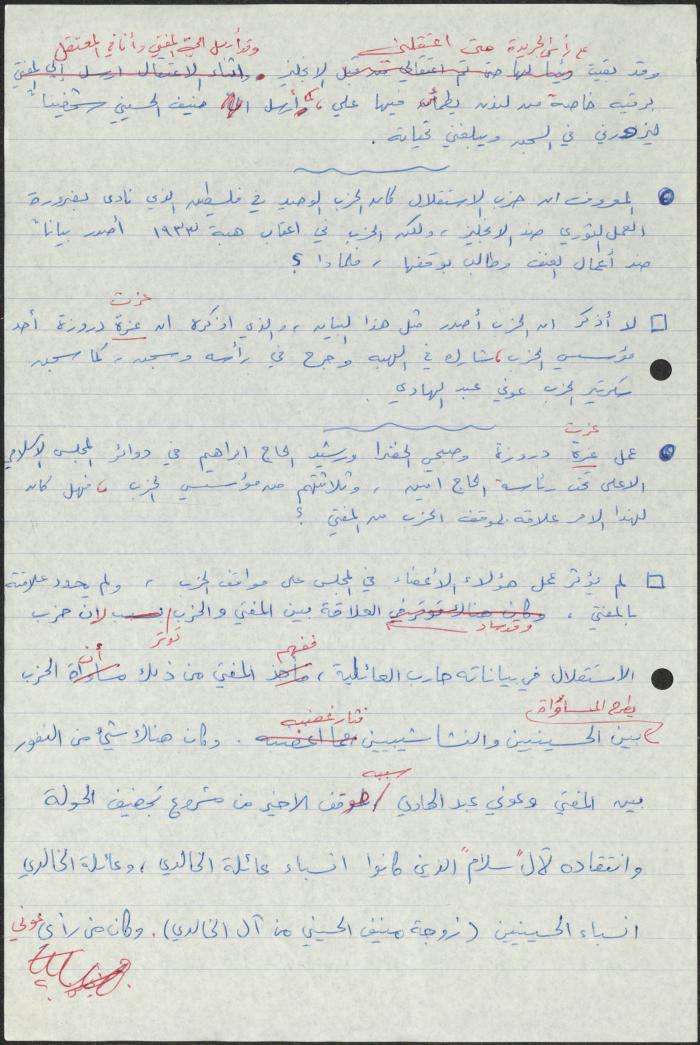 على رأس الجريدة حتى اعتقلني وقد أرسل إليّ المفتي وأنا في المعتقل
وقد بقيت رئيسا لها حتى تم اعتقالي من قبل الإنجليز. واثناء الاعتقال ارسل إلي المفتي
برقية خاصة من لندن يطمأن فيها علي، كما أرسل إلي منيف الحسيني شخصياً
ليزورني في السجن ويبلغني تحياته.
المعروف ان حزب الاستقلال كان الحزب الوحيد في فلسطين الذي نادى بضرورة
العمل الثوري ضد الانجليز، ولكن الحزب في اعقاب هبة ١٩٣٣ أصدر بياناً
ضد أعمال العنف وطالب بوقفها، فلماذا؟
عزت
□ لا أذكر ان الحزب أصدر مثل هذا البيان، والذي اذكره ان عزة دروزة أحد
مؤسسي الحزب، شارك في الهبه وجرح في رأسه وسجن، كما سجن
سكرتير الحزب عوني عبد الهادي.
عزت
عمل عزة دروزة وصبحي الخضرا ورشيد الحاج ابراهيم في دوائر المجلس الإسلامي
الاعلى تحت رئاسة الحاج امين، وثلاثتهم من مؤسسي الحزب، فهل كان
لهذا الامر علاقة بموقف الحزب من المفتي؟
□ لم يؤثر عمل هؤلاء الأعضاء في المجلس على مواقف الحزب، ولم يحدد علاقته
بالمفتي، وكان هناك توتر في العلاقة بين المفتي والحزب بسبب لان حزب
وقد ساد توتر
ففهم أن
الاستقلال في بياناته حارب العائلية، فأخذ المفتي من ذلك مساواة الحزب
يطرح المساواة فثار غضبه
بين الحسينيين والنشاشيبيين مما أغضبه. وكان هناك شيء من النفور
سببه
بين المفتي وعوني عبد الهادي لموقف الاخير من مشروع تجفيف الحولة
وانتقاده لآل "سلام" الذين كانوا انسباء عائلة الخالدي، وعائلة الخالدي
انسباء الحسينيين (زوجة منيف الحسيني من آل الخالدي). وكان من رأي عوني